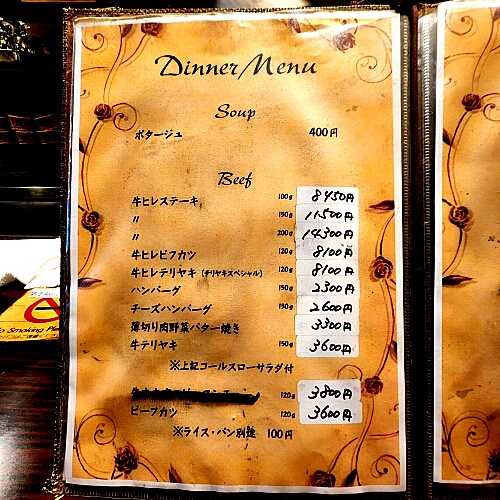 Dinner Menu
Soup
ポタージュ 400円
Beef
牛ヒレステーキ 100g 8450円
〃 150g 11500円
〃 200g 14300円
牛ヒレビフカツ 120g 8100円
牛ヒレテリヤキ (テリヤキスペシャル) 120g 8100円
ハンバーグ 150g 2300円
チーズハンバーグ 150g 2600円
薄切り肉野菜バター焼き 3300円
牛テリヤキ 150g 3600円
※上記コールスローサラダ付
120g 3800円
ビーフカツ 120g 3600円
※ライス・パン別途 100円
Smoking